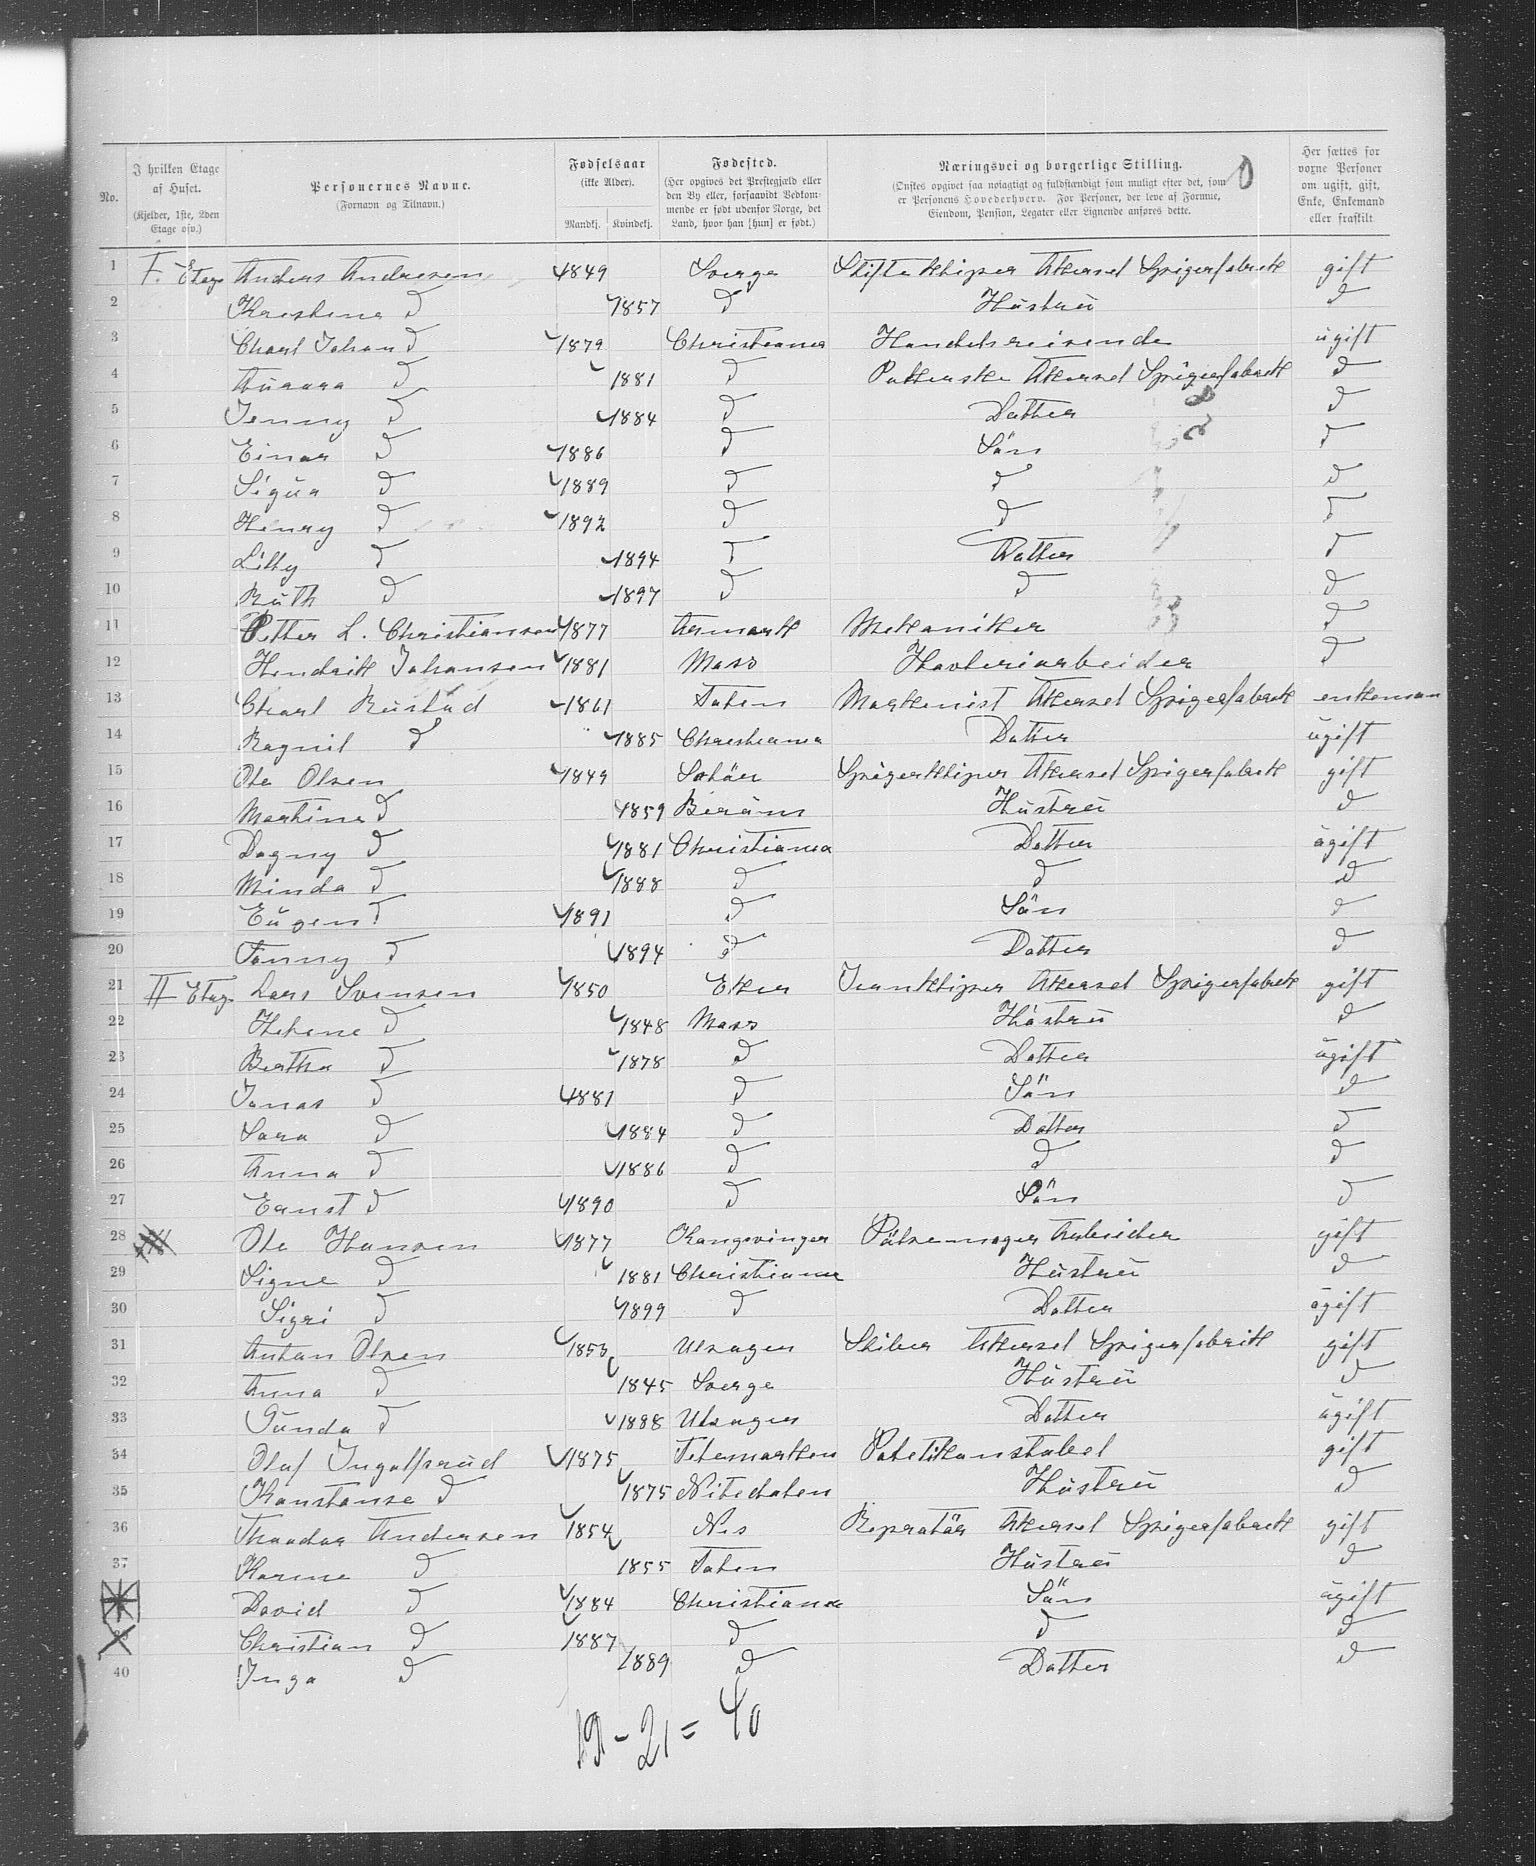 No.
I hvilken Etage af Huset. (Kjelder, 1ste, 2den Etage osv.)
Personernes Navne. (Fornavn og Tilnavn.)
Fødselsaar (ikke Alder). Mandkj. Kvindekj.
Fødested. (Her opgives det Prestegjæld eller den By eller, forsaavidt Vedkommende er født udenfor Norge, det Land, hvor han [hun] er født.)
Næringsvei og borgerlige Stilling. (Ønskes opgivet saa nøiagtigt og fuldstændigt som muligt efter det, som er Personens Hovederhverv. For Personer, der leve af Formue, Eiendom, Pension, Legater eller Lignende anføres dette.
Her sættes for voxne Personer om ugift, gift, Enke, Enkemand eller fraskilt
0
1 I. Etage Anders Andresen 1849 Sverge Stifteklipper Akersel Spigerfabrik gift
2 Kristine D 1857 D Hustru D
3 Charl Johan D 1879 Christiania Handelsreisende ugift
4 Aurora D 1881 D Pakkerske Akersel Spigerfabrik D
5 Jenny D 1884 D Datter D
6 Einar D 1886 D Sön D
7 Sigua D 1889 D D D
8 Henry D 1892 D D D
9 Lilly D 1894 D Datter D
10 Ruth D 1897 D D D
11 Petter L. Christiansen 1877 Aremark Mekaniker D
12 Hendrik Johansen 1881 Moss Havleriarbeider D
13 Charl Rustad 1861 Toten Maskenist Akersel Spigerfabrik enkeman
14 Ragnil D 1885 Christiania Datter ugift
15 Ole Olsen 1849 Solöer Spigerklipper Akersel Spigerfabrik gift
16 Martine D 1859 Bærum Hustru D
17 Dagny D 1881 Christiania Datter ugift
18 Minda D 1888 D D D
19 Eugen D 1891 D Sön D
20 Fanny D 1894 D Datter D
21 II Etag. Lars Svensen 1850 Eker Jernklipper Akersel Spigerfabrik gift
22 Helene D 1848 Moss Hustru D
23 Bertha D 1878 D Datter ugift
24 Jonas D 1881 D Sön D
25 Sara D 1884 D Datter D
26 Anna D 1886 D D D
27 Ernst D 1890 D Sön D
28 Ole Hansen 1877 Kongsvinger Pölsemager Arbeider gift
29 Signe D 1881 Christiania Hustru D
30 Sigri D 1899 D Datter ugift
31 Anton Olsen 1853 Ulsager Sliber Akersel Spigerfabrik gift
32 Anna D 1845 Sverge Hustru D
33 Gunda D 1888 Ulsager Datter ugift
34 Olaf Ingolfsrud 1875 Telemarken Politikonstabel gift
35 Konstanse D 1875 Nitedalen Hustru D
36 Theodor Andersen 1854 Nes Repratör Akersel Spigerfabrik gift
37 Karine D 1855 Toten Hustru D
David D 1884 Christiania Sön ugift
39 Christian D 1887 D D D
40 Inga D 1889 D Datter D
19 - 21 = 40